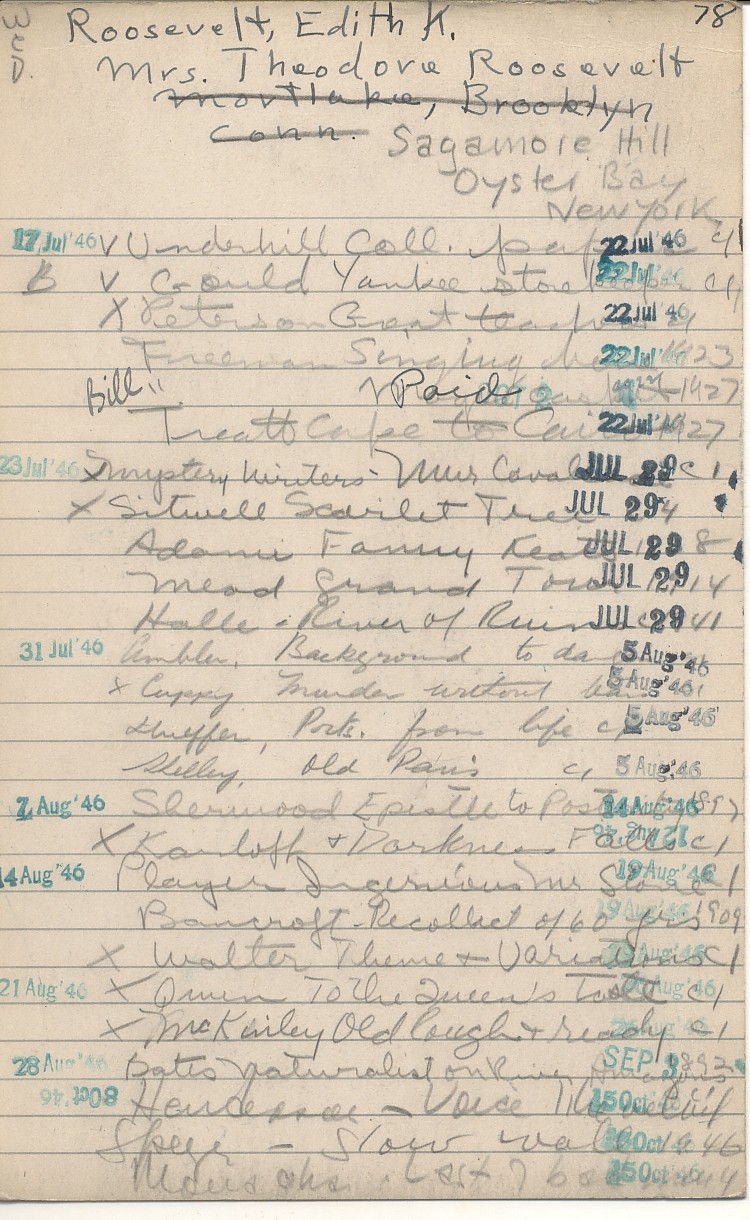 WCD. 78
Roosevelt, Edith K.
Mrs. Theodore Roosevelt
Mortlake, Brooklyn
Conn. Sagamore Hill
Oyster Bay
New York
17 Jul '46 V Underhill Coll. papers 22 Jul '46 c1
B V Gould Yankee store 22 Jul '46 c1
X Peterson Great 22 Jul '46
Freeman Singing 22 Jul '46 1923
Bill!! V Paid 1927
Treatt Cape to Cairo 22 Jul '46 1927
23 Jul '46 X Mystery Writers - Murder Caval JUL 29 c1
X Sitwell Scarlet Tree JUL 29 4
Adami Fanny Keats JUL 29 8
Mead Grand Tour JUL 29 14
Halle - River of Ruins JUL 29 41
31 Jul '46 Ambler, Background to da 5 Aug '46
X Cuppy Murder without 5 Aug '46
Hueffer, Ports. from life c1 5 Aug '46
Shelley, Old Paris c1 5 Aug '46
7 Aug '46 Sherwood Epistle to Posterity 14 Aug '46 1897
X Karloff + Darkness Falls 12 Aug '46 c1
14 Aug '46 Player Ingenious Mr Stone 19 Aug '46 c1
Bancroft - Recollect of 60 yrs 19 Aug '46 1909
X Walter Theme + Variations c1
21 Aug '46 X Queen To the Queen's taste c1
X McKinley Old rough + ready c1
28 Aug '46 Bates Naturalist on River Amazons SEP 3 1892
8 Oct '46 Henderson - Voice 15 Oct
- Slow 15 Oct 46
Last 15 Oct 46